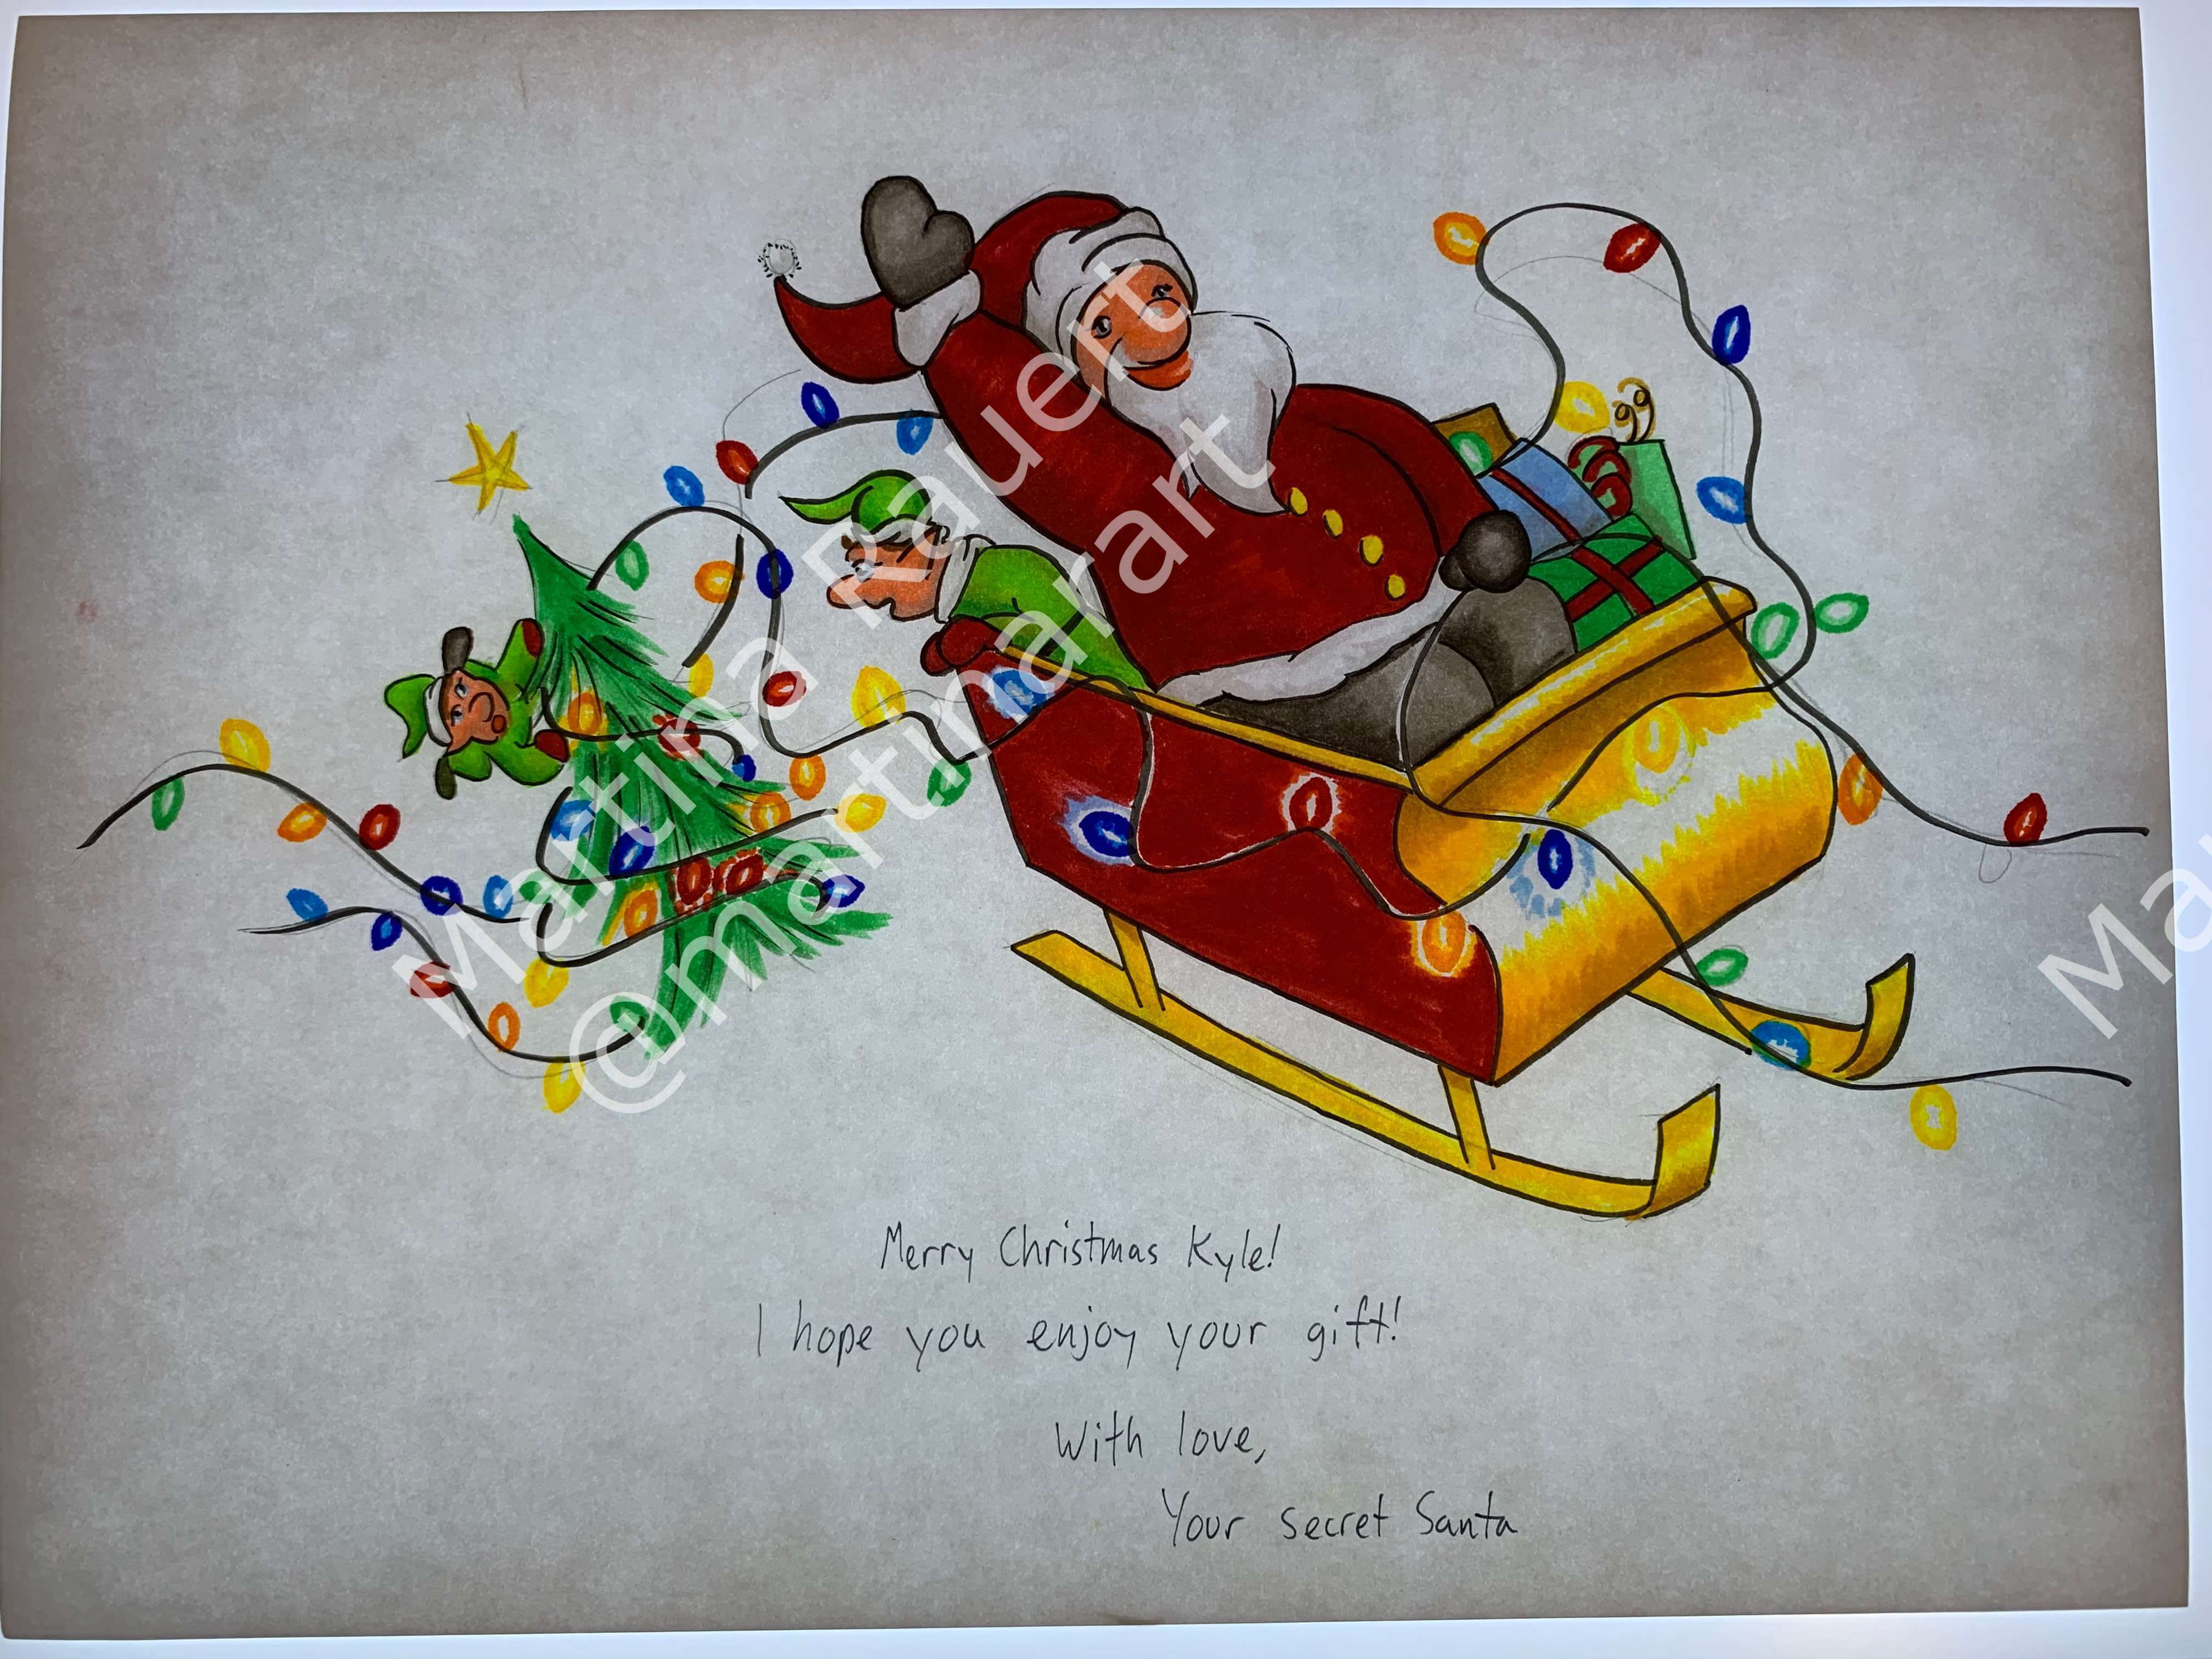 Martina Rauert
@martinarart
Merry Christmas Kyle!
I hope you enjoy your gift!
With love,
Your secret Santa
Ma